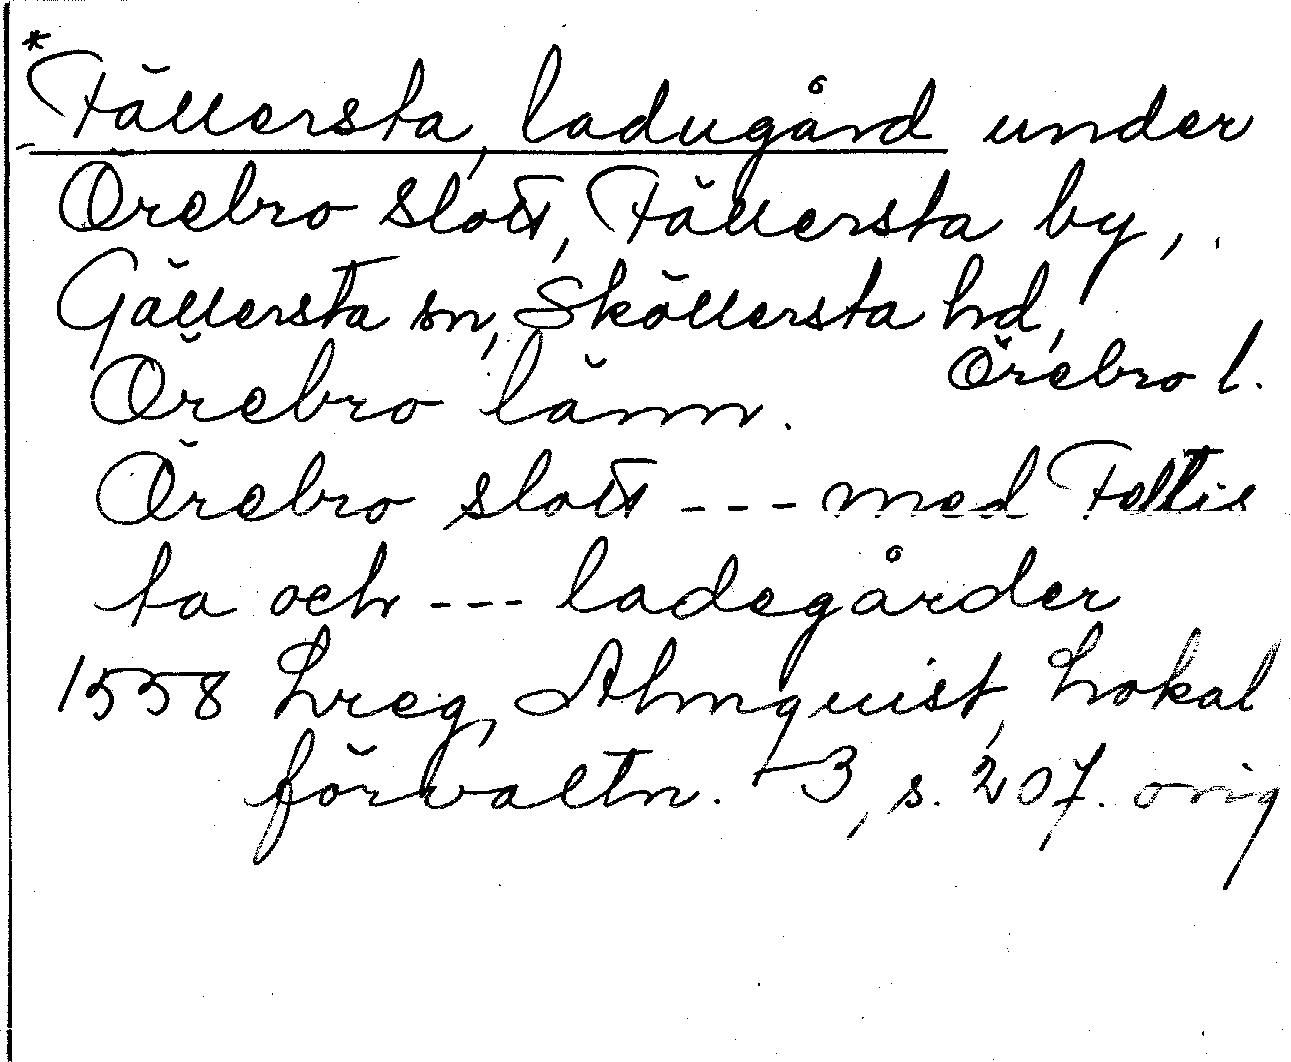 *Fällersta, ladugård under
Örebro slott, Fällersta by,
Gällersta sn, Sköllersta hd,
Örebro l.
Örebro länn.
Örebro slott --- med Feltis
ta och --- ladegårder
1558 Lreg, Almquist, Lokal
förvaltn. 3, s. 207. orig